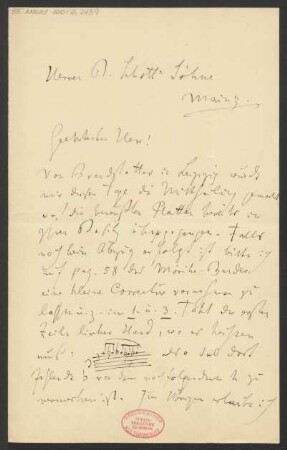 Herren B. Schott's Söhne
Mainz.
Geehrtester Herr!
Von Brandstetter in Leipzig wurde
mir dieser Tage die Mittheilung gemacht
die bewussten Platten bereits in
Ihren Besitz übergegangen. Falls
noch kein Abzug erfolgt ist bitte ich
auf pag. 58 des Mörike-Bandes
eine kleine Correctur vornehmen zu
lassen u. z. im 1. u. 3. Takt der ersten
Zeile linker Hand, wo es heissen
muss: also das dort
fehlende b vor dem
vermerken ist. Im Übrigen erlaube ich